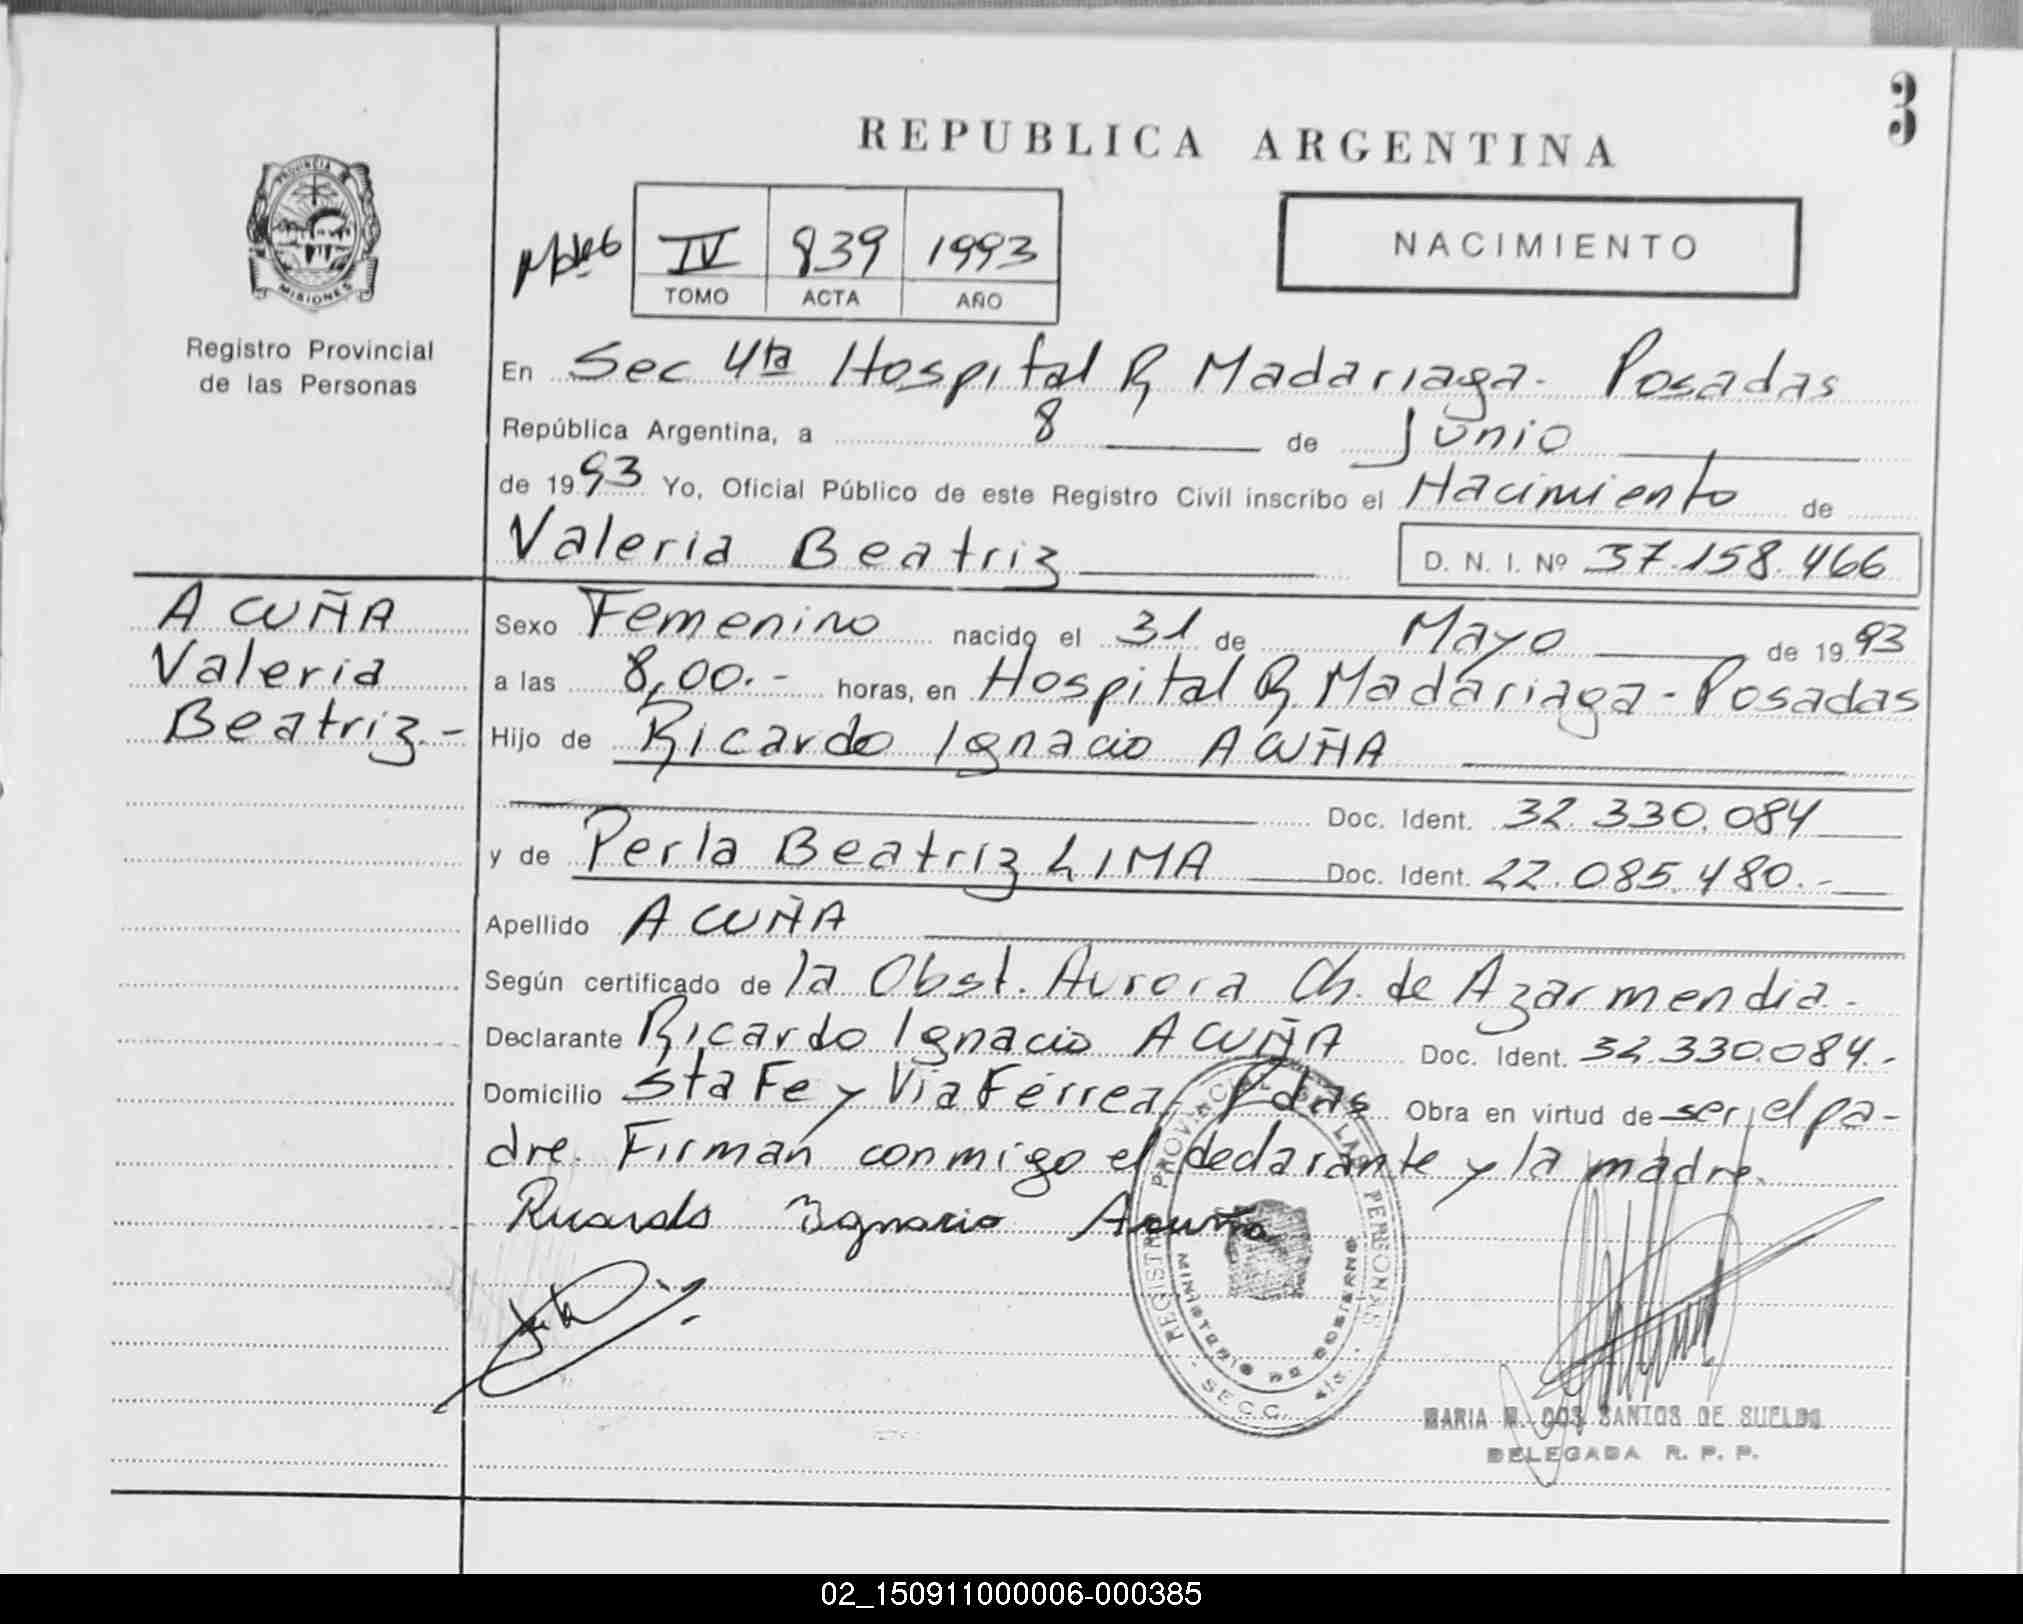 3
REPUBLICA ARGENTINA
PROVINCIA DE
MISIONES
Registro Provincial
de las Personas
IV 839 1993
TOMO ACTA AÑO
NACIMIENTO
En Sec 4ta Hospital R Madariaga - Posadas
República Argentina, a 8 de Junio
de 1993 Yo, Oficial Público de este Registro Civil inscribo el Nacimiento de
Valeria Beatriz D. N. I. Nº 37.158.466
ACUÑA
Valeria
Beatriz.-
Sexo Femenino nacido el 31 de Mayo de 1993
a las 8,00.- horas, en Hospital R Madariaga - Posadas
Hijo de Ricardo Ignacio ACUÑA
Doc. Ident. 32.330.084
y de Perla Beatriz LIMA Doc. Ident. 22.085.480.-
Apellido ACUÑA
Según certificado de la Obst. Aurora Ch. de Azarmendia.-
Declarante Ricardo Ignacio ACUÑA Doc. Ident. 32.330.084.-
Domicilio Sta Fe y Via Férrea, Pdas Obra en virtud de ser el pa-
dre. Firman conmigo el declarante y la madre.
Ricardo Ignacio Acuña
REGISTRO PROVINCIAL DE LAS PERSONAS
MINISTERIO DE GOBIERNO
SECC. 4ta.
MARIA DOS SANTOS DE SUELDO
DELEGADA R. P. P.
02_150911000006-000385